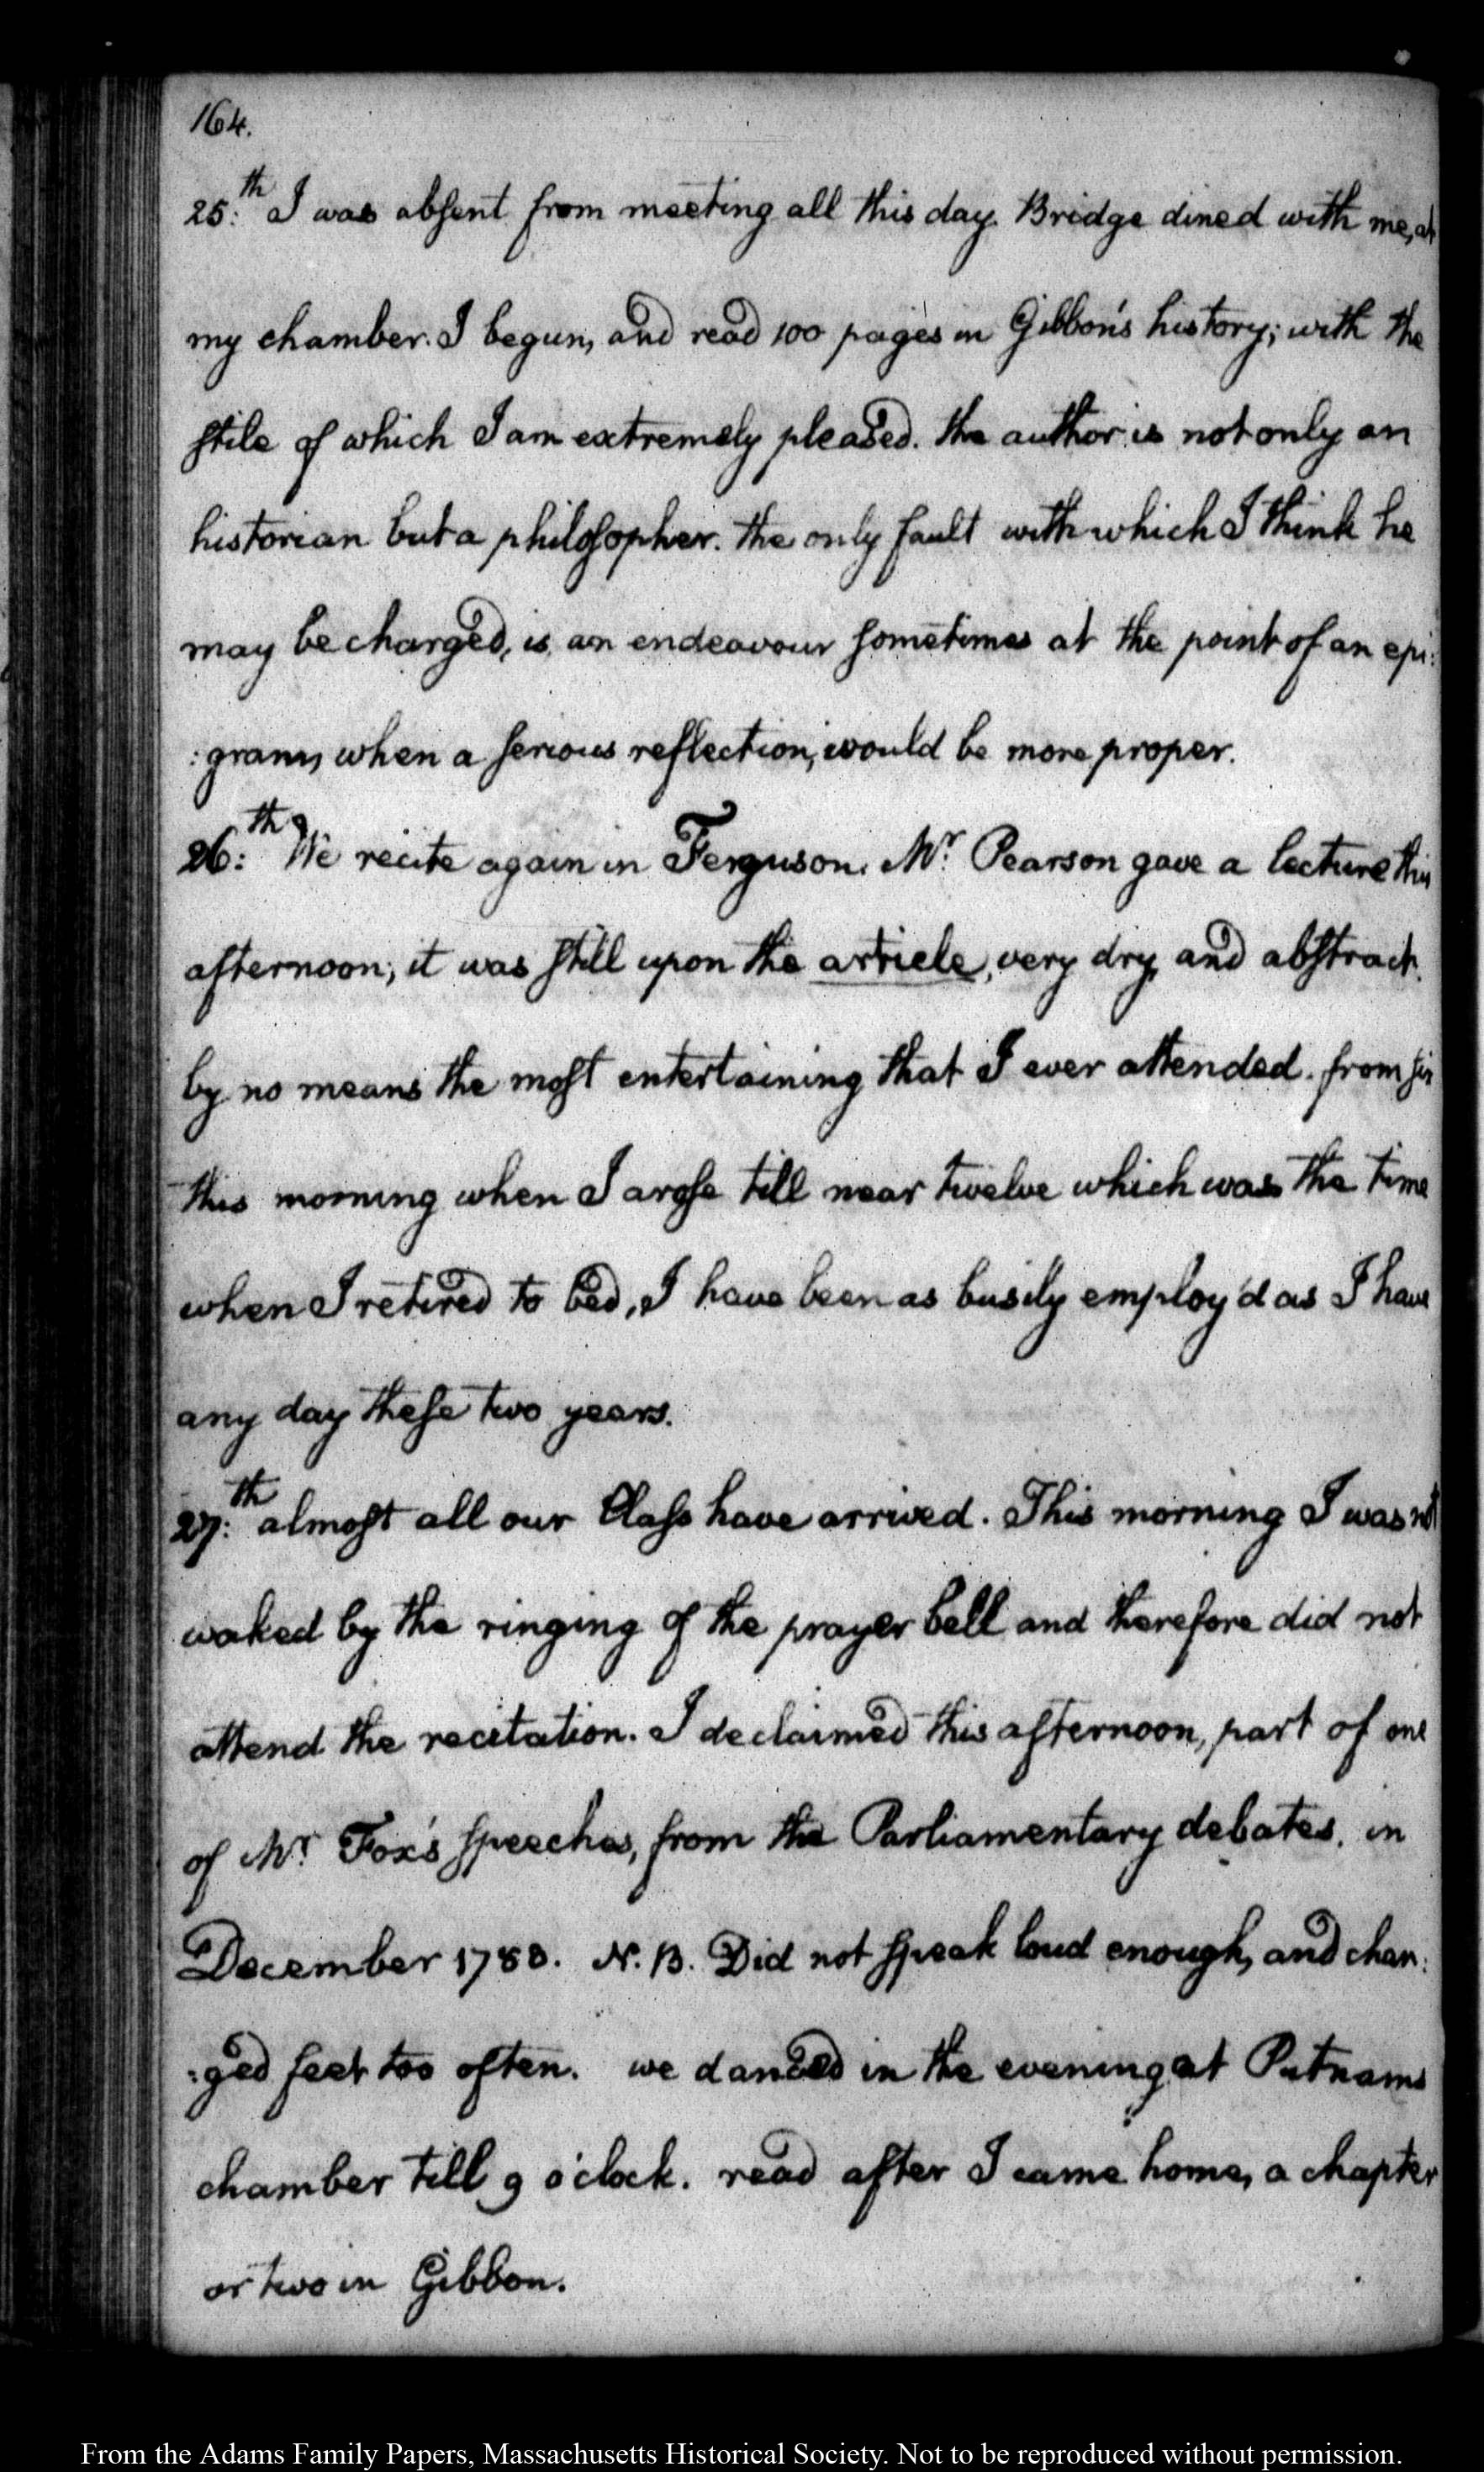 164.
25:th I was absent from meeting all this day. Bridge dined with me, at
my chamber. I begun, and read 100 pages in Gibbon's history; with the
stile of which I am extremely pleased. the author is not only an
historian but a philosopher. the only fault with which I think he
may be charged, is an endeavour sometimes at the point of an epi:
:gram, when a serious reflection, would be more proper.
26:th We recite again in Ferguson. Mr. Pearson gave a lecture this
afternoon; it was still upon the article, very dry, and abstract.
by no means the most entertaining that I ever attended. from six
this morning when I arose till near twelve which was the time
when I retired to bed, I have been as busily employ'd as I have
any day these two years.
27:th almost all our Class have arrived. This morning I was not
waked by the ringing of the prayer bell and therefore did not
attend the recitation. I declaimed this afternoon, part of one
of Mr. Fox's speeches, from the Parliamentary debates, in
December 1783. N.B. Did not speak loud enough, and chan:
:ged feet too often. we danced in the evening at Putnams
chamber till 9 o'clock. read after I came home, a chapter
or two in Gibbon.
From the Adams Family Papers, Massachusetts Historical Society. Not to be reproduced without permission.